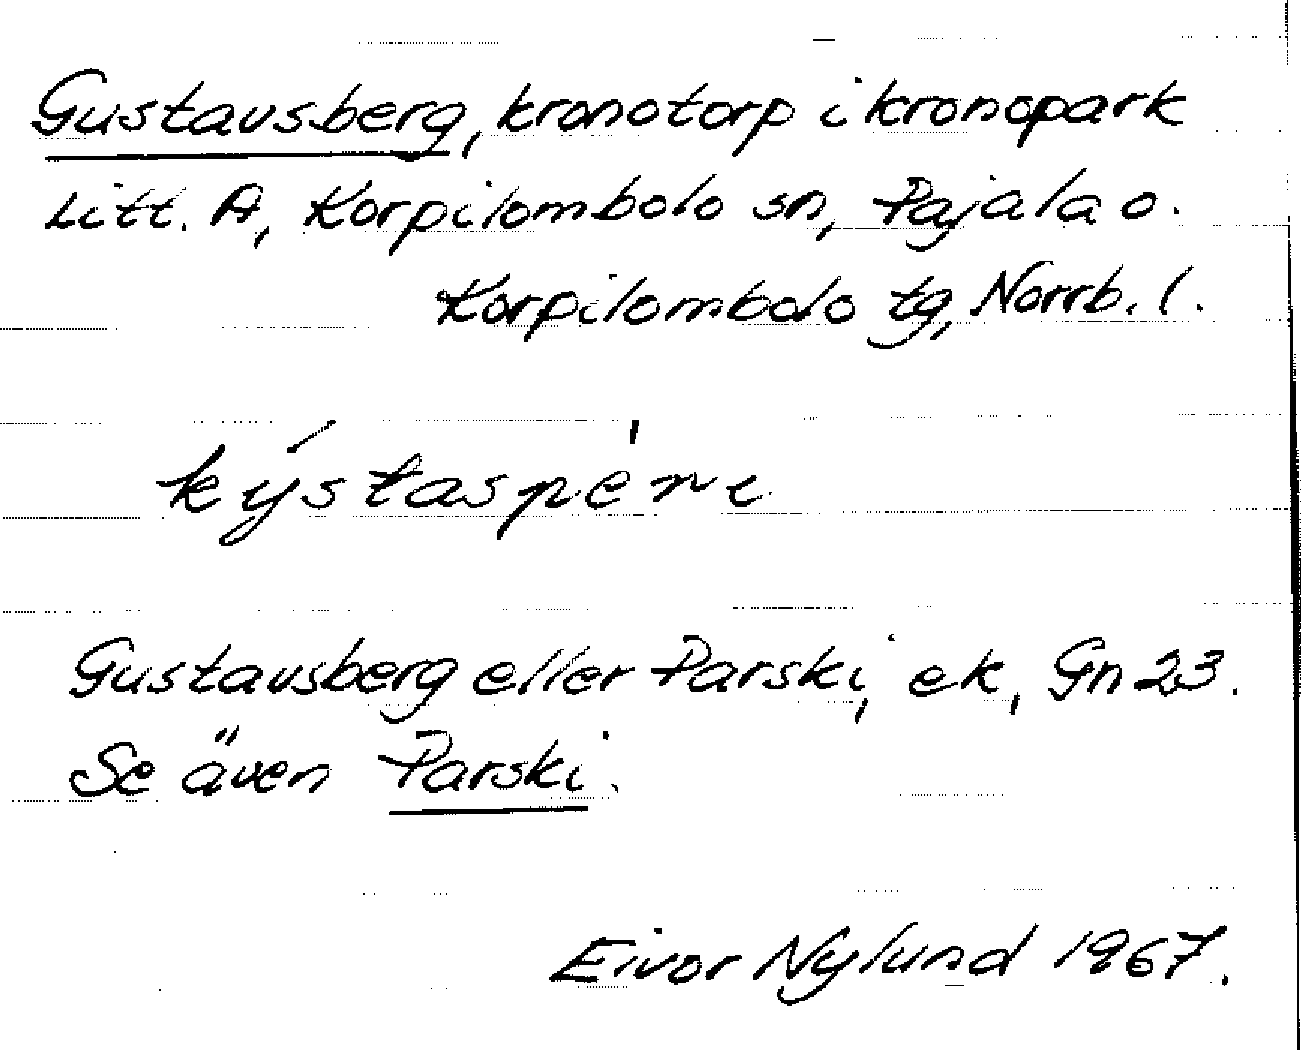 Gustavsberg, kronotorp i kronopark
Litt. A, Korpilombolo sn, Pajala o.
Korpilombolo tg, Norrb. l.
kýstaspéri
Gustavsberg eller Parski, ek, Gn 23.
Se även Parski.
Eivor Nylund 1967.